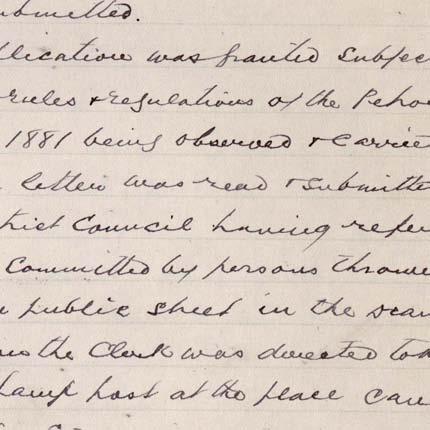 ubmitted.
lication was granted subjec
rules & regulations of the Petro
1881 being observed & carrie
letter was read & submitte
trict Council having refer
Committed by persons throwi
public street in the
the Clerk was directed to
lamp post at the place